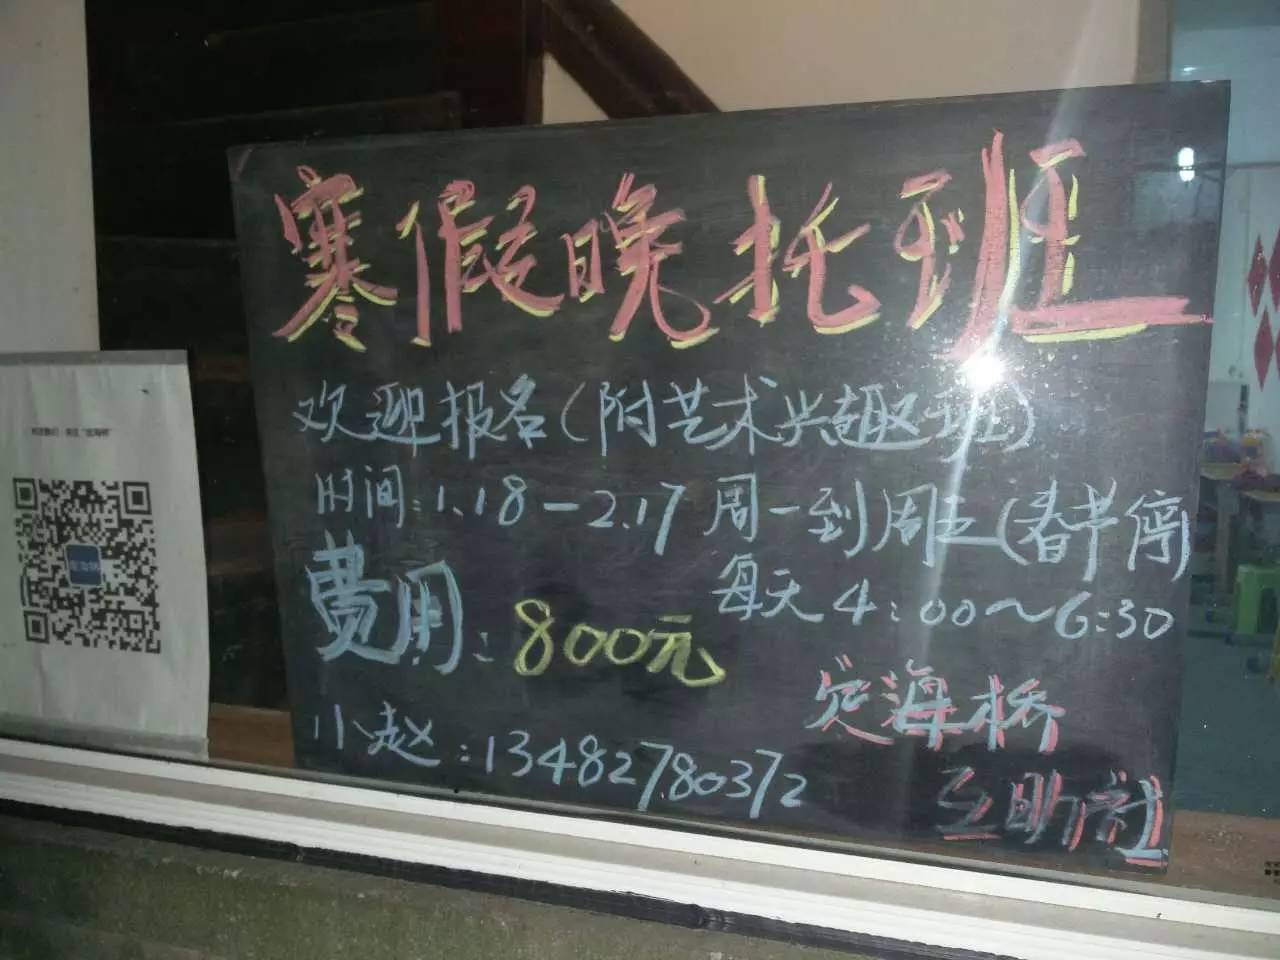 寒假晚托班
欢迎报名(附艺术兴趣班)
时间:1.18-2.17 周一到周五(春节停)
每天4:00~6:30
费用:800元
小赵:13482780372
定海桥
互助社